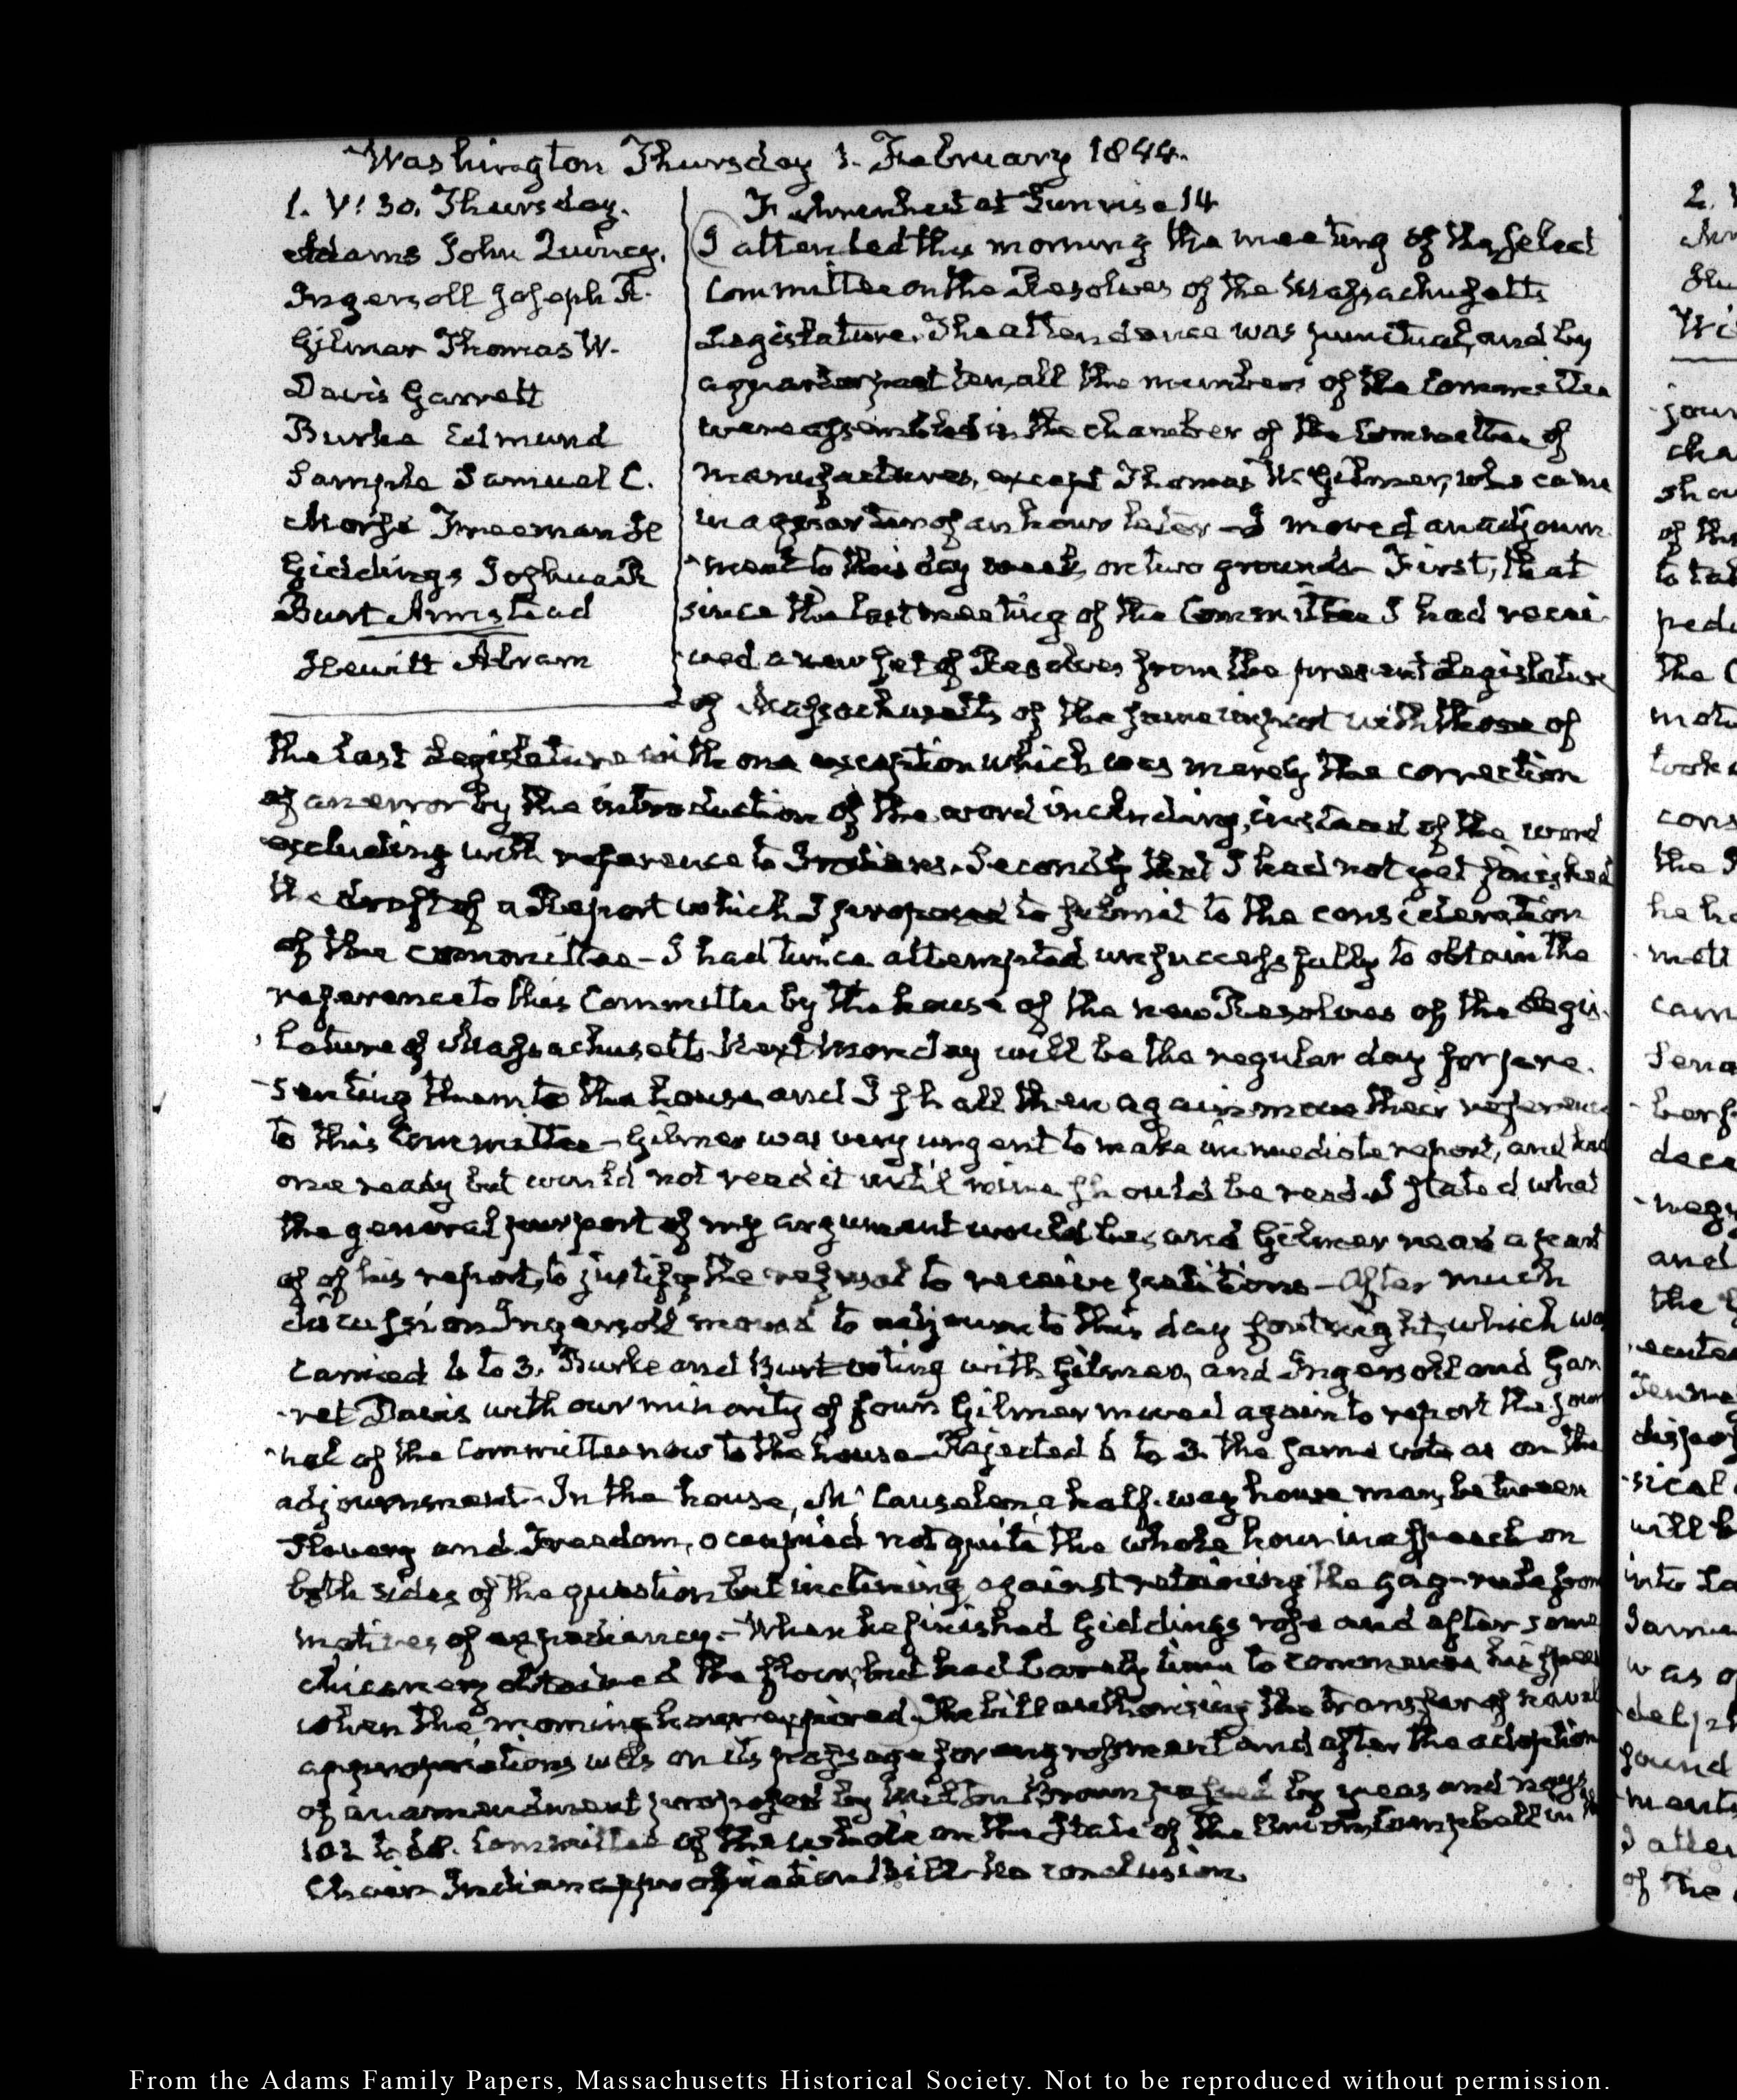 Washington Thursday 1. February 1844.
1. V: 30. Thursday.
Adams John Quincy.
Ingersoll Joseph R.
Gilmer Thomas W.
Davis Garrett
Burke Edmund
Sample Samuel C.
Morse Freeman H
Giddings Joshua R
Burt Armistead
Hewitt Abram
Fahrenheit at Sunrise 14
I attended this morning the meeting of the select
Committee on the Resolves of the Massachusetts
Legislature. The attendance was punctual, and by
a quarter past ten, all the members of the Committee
were assembled in the chamber of the Committee of
Manufactures, except Thomas W. Gilmer, who came
in a quarter of an hour later – I moved an adjourn
-ment to this day week, on two grounds – First, that
since the last meeting of the Committee I had recei
-ved a new set of Resolves from the present Legislature
of Massachusetts of the same import with those of
the last Legislature with one exception which was merely the correction
of an error by the introduction of the word including, instead of the word
excluding with reference to Indians. Secondly that I had not yet finished
the draft of a Report which I proposed to submit to the consideration
of the committee – I had twice attempted unsuccessfully to obtain the
reference to this Committee by the house of the new Resolves of the Legis-
lature of Massachusetts. Next Monday will be the regular day for pre-
-senting them to the house and I shall then again move their reference
to this Committee – Gilmer was very urgent to make immediate report, and had
one ready but would not read it until mine should be read. I stated what
the general purport of my argument would be, and Gilmer read a part
of of his report, to justify the refusal to receive petitions – After much
discussion Ingersoll moved to adjourn to this day fortnight, which was
carried 6 to 3. Burke and Burt voting with Gilmer, and Ingersoll and Gar
-ret Davis with our minority of four. Gilmer moved again to report the jour
-nal of the Committee now to the house – Rejected 6 to 3. the same vote as on the
adjournment. In the house, McCauslen a half-way house man, between
Slavery and Freedom, occupied not quite the whole hour in a speech on
both sides of the question but inclining against retaining the gag-rule from
motives of expediency. – When he finished Giddings rose and after some
chicanery obtained the floor, but had barely time to commence his speech
when the morning hour expired. The bill authorising the transfer of naval
appropriations was on its passage for engrossment and after the adoption
of an amendment proposed by Milton Brown passed by yeas and nays
102 to 68. Committee of the whole on the State of the Union, Campbell in the
Chair Indian appropriation bill. No conclusion.
2.
From the Adams Family Papers, Massachusetts Historical Society. Not to be reproduced without permission.